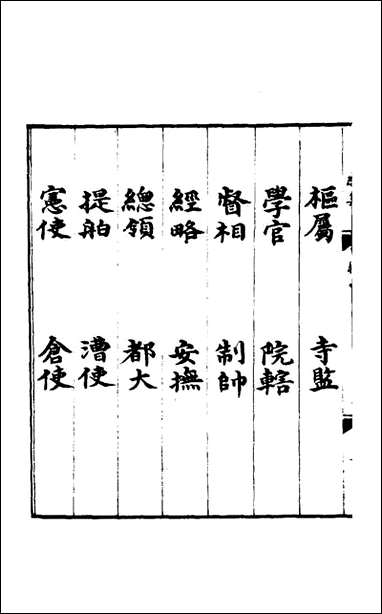 樞屬 寺監
學官 院轄
督相 制帥
經略 安撫
總領 都大
提舶 漕使
憲使 倉使